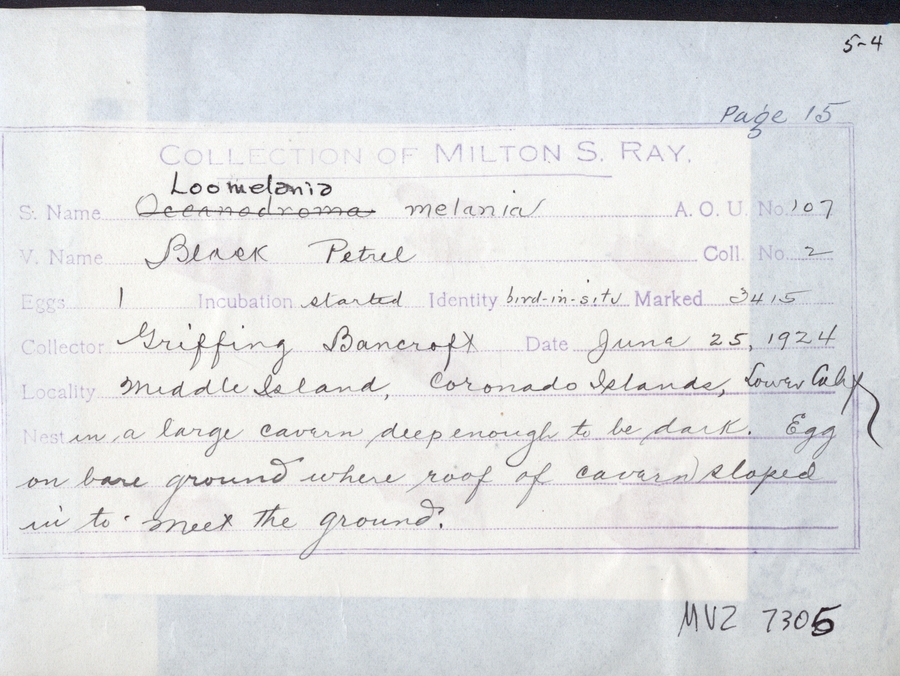 5-4
Page 15
COLLECTION OF MILTON S. RAY.
Loomelania
S. Name Oceanodroma melania A. O. U. No. 107
V. Name Black Petrel Coll. No. 2
Eggs 1 Incubation started Identity bird-in-situ Marked 3415
Collector Griffing Bancroft Date June 25, 1924
Locality Middle Island, Coronado Islands, Lower Calif
Nest in a large cavern deep enough to be dark. Egg
on bare ground where roof of cavern sloped
in to meet the ground.
MVZ 7305